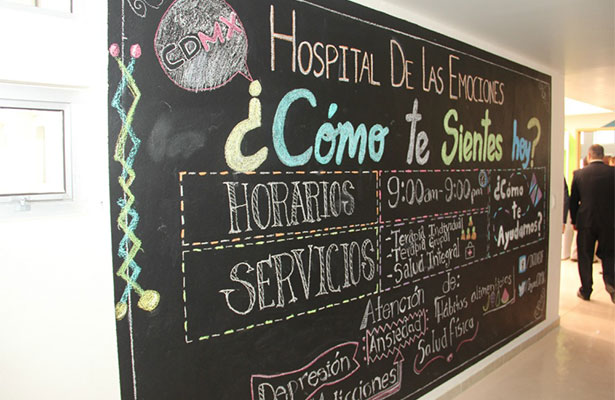 CDMX
HOSPITAL DE LAS EMOCIONES
¿Cómo te Sientes hoy?
HORARIOS
9:00am-9:00pm
¿Cómo
te
Ayudamos?
SERVICIOS
-Terapia Individual
-Terapia Grupal
-Salud Integral
Atención de:
Hábitos alimenticios
Ansiedad
Salud física
Depresión
Adicciones